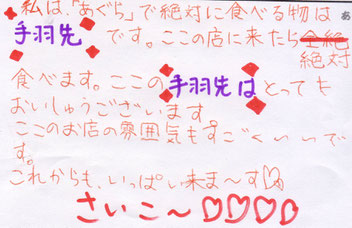 私は、「あぐら」で絶対に食べる物は
手羽先 です。ここの店に来たら絶対
食べます。ここの手羽先はとっても
おいしゅうございます。
ここのお店の雰囲気もすごくいいで
す。
これからも、いっぱい来ま～す
さいこ～
あ